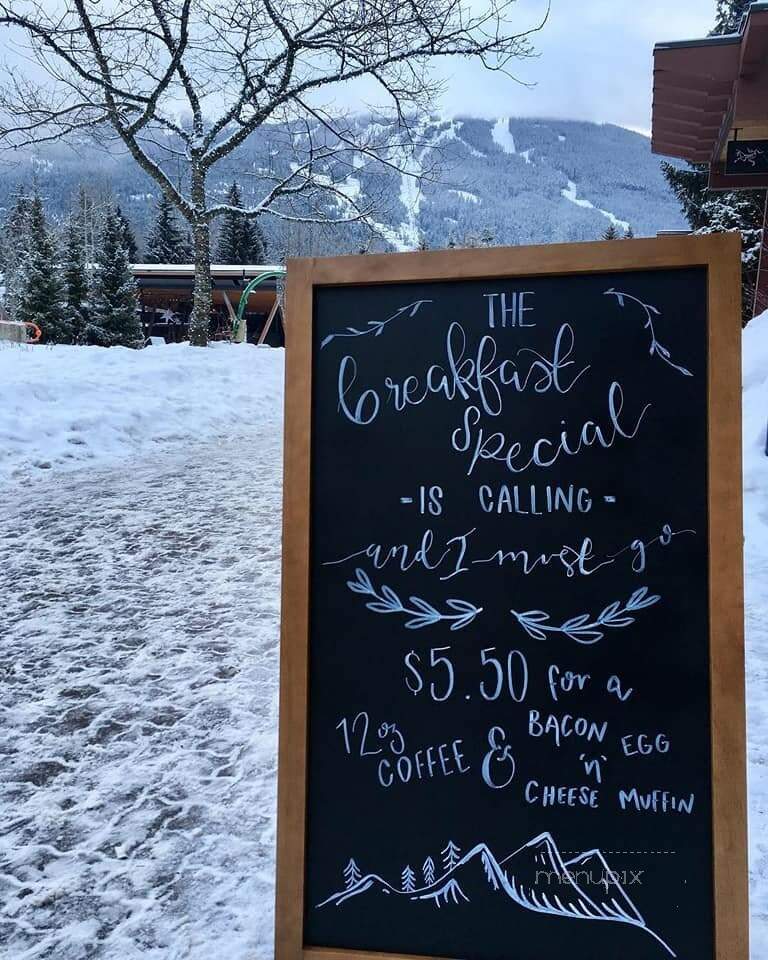 THE
breakfast
Special
-IS CALLING-
and I must go
$5.50 for a
12oz COFFEE & BACON EGG
'n'
CHEESE MUFFIN
menupix